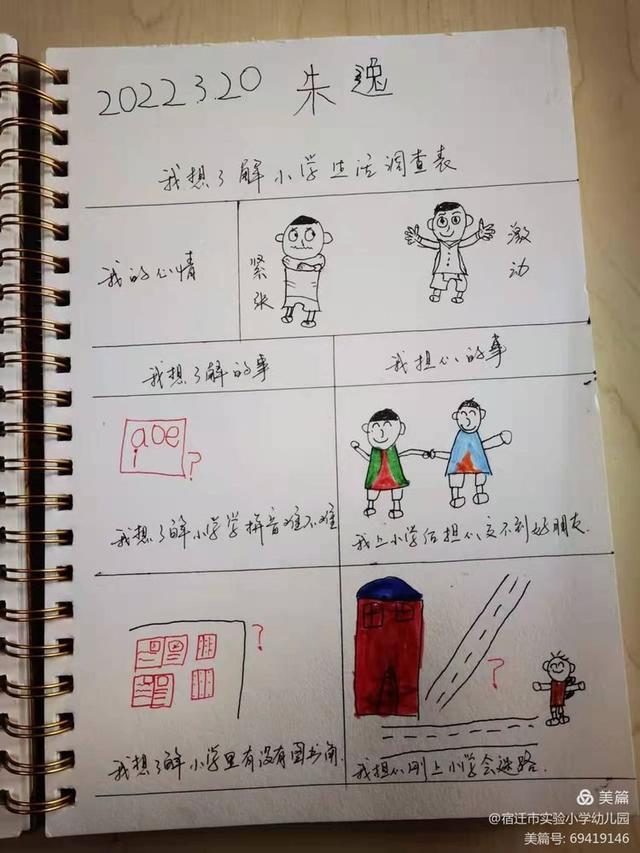 2022.3.20 朱逸
我想了解小学生活调查表
我的心情
紧张
激动
我想了解的事
我担心的事
aoe
i
?
我想了解小学学拼音难不难
我上小学后担心交不到好朋友.
?
?
我想了解小学里有没有图书角.
我担心刚上小学会迷路.
美篇
@宿迁市实验小学幼儿园
美篇号: 69419146